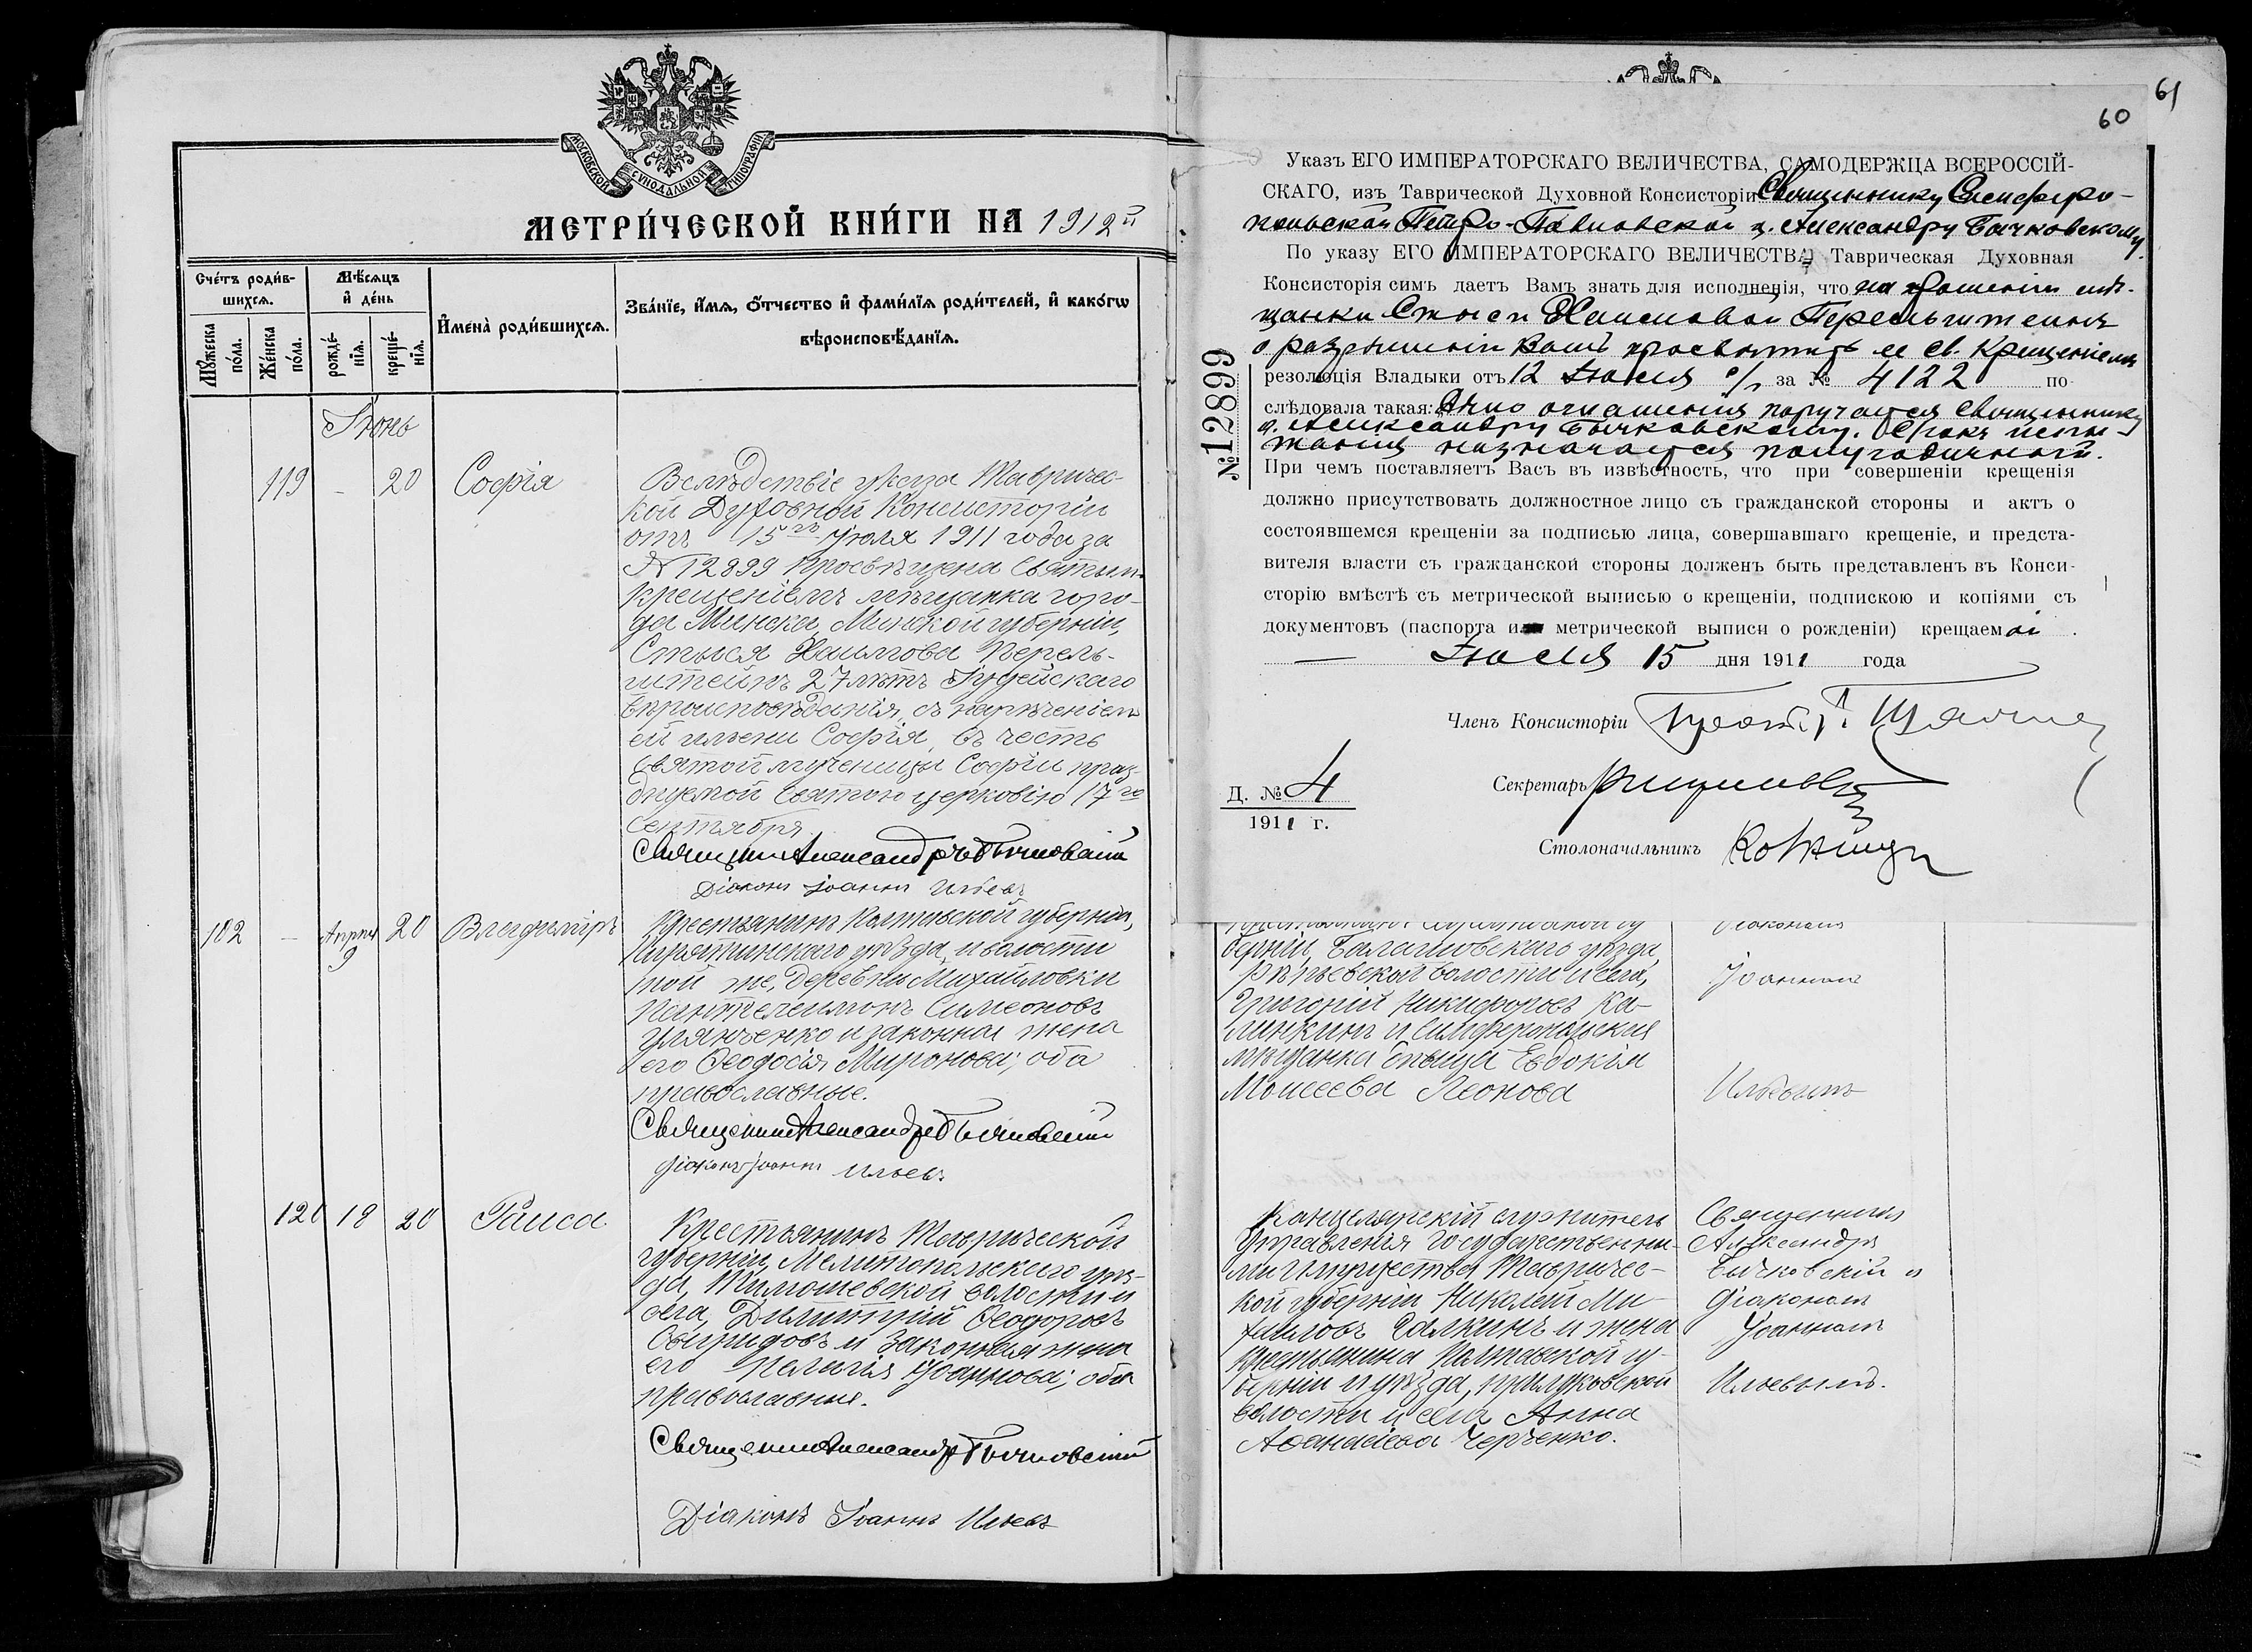 МОСКОВСКОЙ СѴНОДАЛЬНОЙ ТИПОГРАФІИ
МЕТРИ́ЧЕСКОЙ КНИ́ГИ НА 1912й
Сче́тъ роди́в-
шихсѧ.
Мѣ́сѧцъ
и҆ де́нь
Мꙋ́жеска
по́ла.
Же́нска
по́ла.
рожде́-
нїѧ.
креще́-
нїѧ.
И҆мена̀ роди́вшихсѧ.
Зва́нїе, и҆́мѧ, ѻ҆́тчество и҆ фами́лїѧ роди́телей, и҆ како́гѡ
вѣроисповѣ́данїѧ.
Іюнь
119 - 20 Софія
Вслѣдствіе указа Тавричес-
кой Духовной Консисторіи
отъ 15го Іюля 1911 года за
№ 12899 просвѣщена Святым
крещеніемъ мѣщанка горо-
да Минска, Минской губерніи,
Стыся Хаимова Перель-
штейнъ 27 лѣтъ Іудейскаго
вѣроисповѣданія, съ нареченіем
ей имени Софія, въ честь
святой мученицы Софіи праз-
днуемой святою церковію 17го
Сентября.
Священникъ Александръ Бычковскій
Діаконъ Іоаннъ Ильевъ
102 — Апрѣля 9 20 Владиміръ
Крестьянинъ Полтавской губерніи,
Пирятинскаго уѣзда, и волости
той же, деревни Михайловки
Пантелеимонъ Симеоновъ
Ульянченко и законная жена
его Ѳеодосія Миронова; оба
православные.
Священникъ Александръ Бычковскій
Діаконъ Іоаннъ Ильевъ.
120 18 20 Раиса
Крестьянинъ Таврической
губерніи, Мелитопольскаго уѣз-
да, Тимошевской волости и
села, Димитрій Ѳеодоровъ
Свиридовъ и законная жена
его Пелагія Іоаннова; оба
православные.
Священникъ Александръ Бычковскій
Діаконъ Іоаннъ Ильевъ
61
60
Указъ ЕГО ИМПЕРАТОРСКАГО ВЕЛИЧЕСТВА, САМОДЕРЖЦА ВСЕРОССІЙ-
СКАГО, изъ Таврической Духовной Консисторіи Священнику Симферо-
польской Петро-Павловской ц. Александру Бычковскому.
По указу ЕГО ИМПЕРАТОРСКАГО ВЕЛИЧЕСТВА, Таврическая Духовная
Консисторія симъ даетъ Вамъ знать для исполненія, что на прошеніи мѣ-
щанки Стыси Хаимовой Перельштейнъ
о разрѣшеніи Вамъ просвѣтить ее св. Крещеніемъ
резолюція Владыки отъ 12 Іюля с/г за № 4122 по-
слѣдовала такая: „Дѣло оглашенія поручается священнику
о. Александру Бычковскому. Срокъ испы-
танія назначается полугодичный.
При чемъ поставляетъ Васъ въ извѣстность, что при совершеніи крещенія
должно присутствовать должностное лицо съ гражданской стороны и актъ о
состоявшемся крещеніи за подписью лица, совершавшаго крещеніе, и предста-
вителя власти съ гражданской стороны долженъ быть представленъ въ Конси-
сторію вмѣстѣ съ метрической выписью о крещеніи, подпискою и копіями съ
документовъ (паспорта и метрической выписи о рожденіи) крещаемой.
— Іюля 15 дня 1911 года
№ 12899
Членъ Консисторіи Прот.
Секретарь
Столоначальникъ
Д. № 4
1911 г.
берніи, Балашовскаго уѣзда,
Рѣпьевской волости и села,
Григорій Никифоровъ Ка-
линкинъ и Симферопольская
мѣщанка дѣвица Евдокія
Моисеева Леонова
Діакономъ
Іоанномъ
Ильевымъ
Канцелярскій служитель
Управленія Государственны-
ми Имуществами Тавричес-
кой губерніи Николай Ми-
хаиловъ Галкинъ и жена
крестьянина Полтавской гу-
берніи и уѣзда, Прилуковской
волости и села Анна
Аѳанасіева Черченко.
Священникъ
Александръ
Бычковскій и
Діакономъ
Іоанномъ
Ильевымъ.